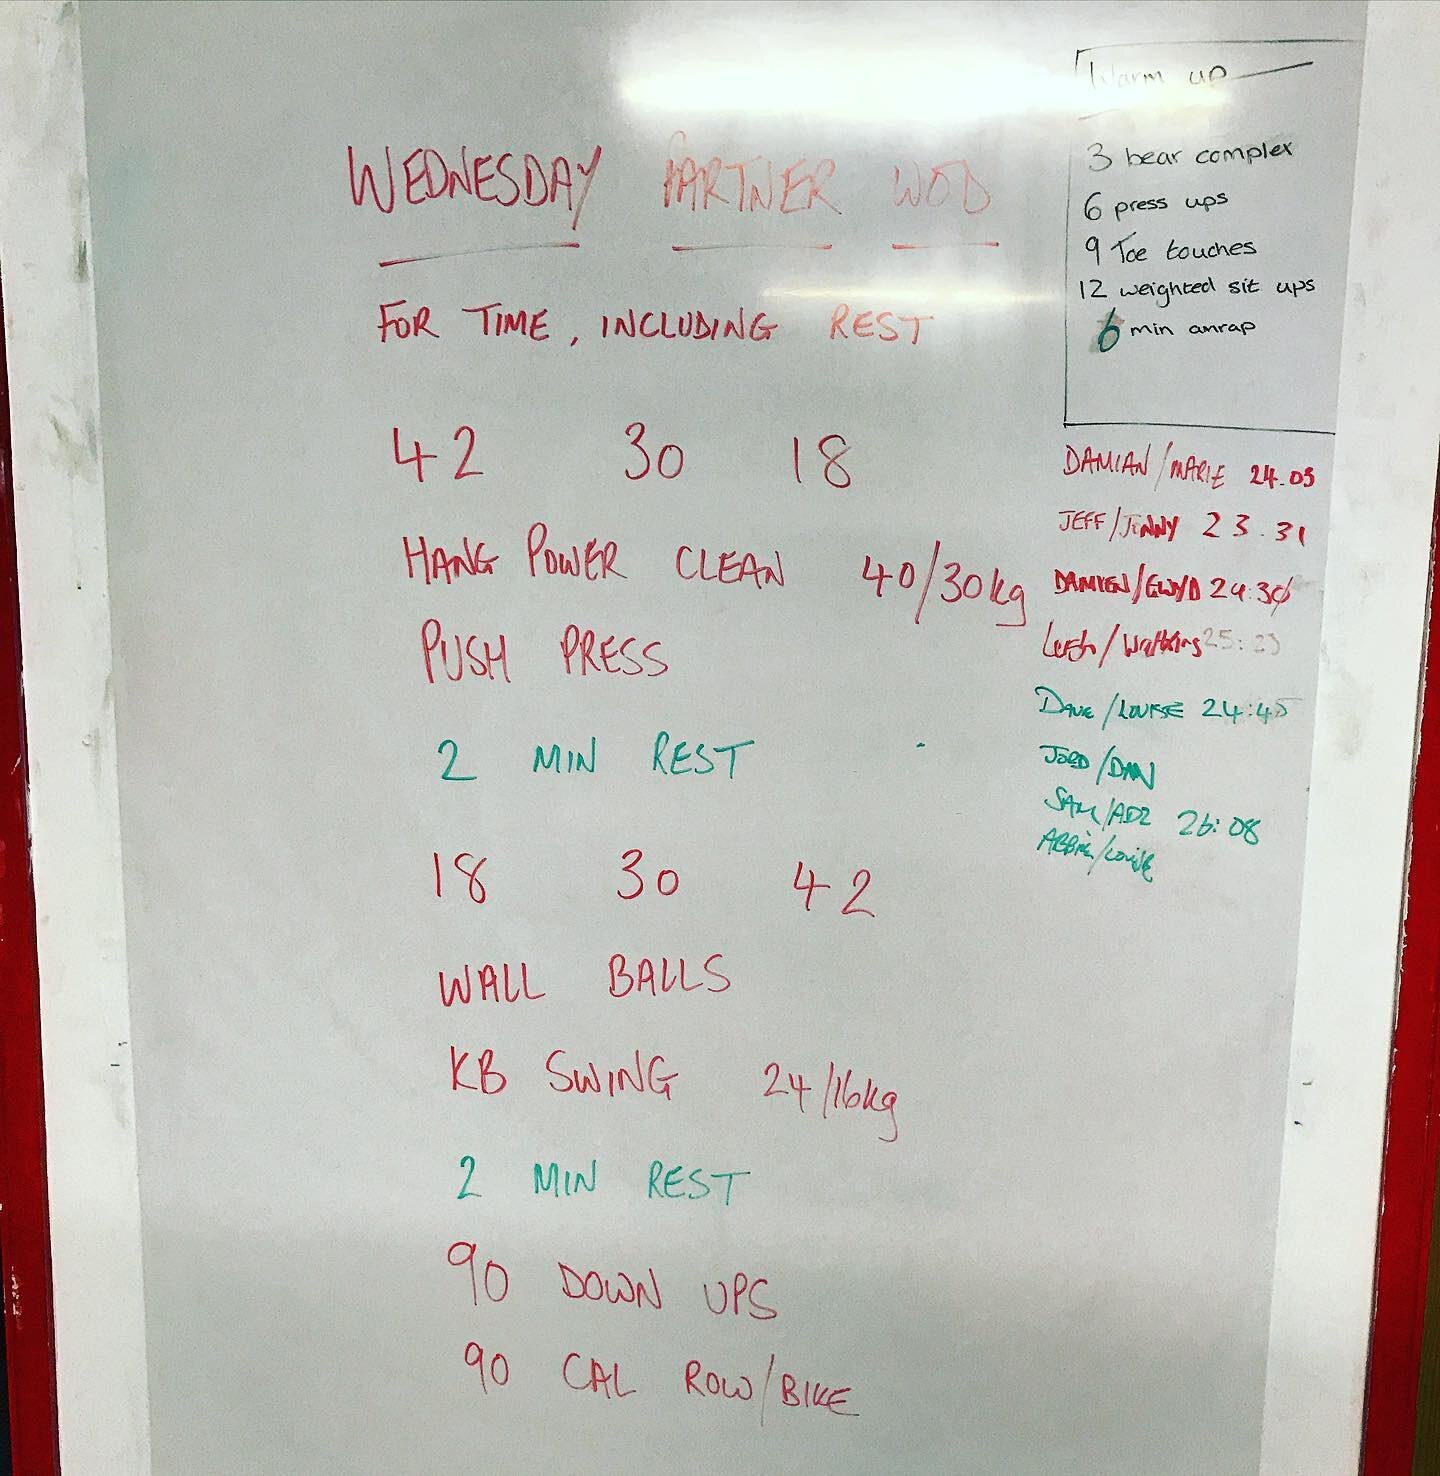 WEDNESDAY PARTNER WOD
FOR TIME, INCLUDING REST
42 30 18
HANG POWER CLEAN 40/30kg
PUSH PRESS
2 MIN REST
18 30 42
WALL BALLS
KB SWING 24/16kg
2 MIN REST
90 DOWN UPS
90 CAL ROW/BIKE
Warm up
3 bear complex
6 press ups
9 Toe touches
12 weighted sit ups
6 min amrap
DAMIAN/MARIE 24.03
JEFF/JENNY 23.31
DAMIEN/GWYD
Leigh/Watkins
Dave/LOUISE 24:45
JORD/DAN
SAM/ADZ 26:08
ABBIE/LOUISE